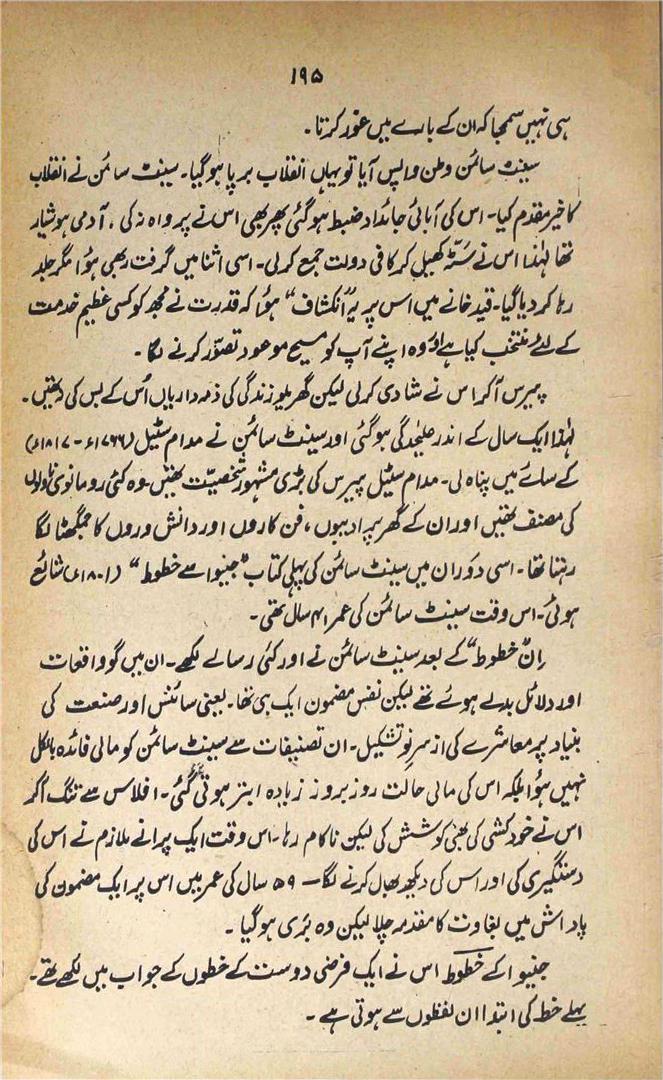 ۱۹۵
ہی نہیں سمجھا کہ ان کے بارے میں غور کرتا۔
سینٹ سائمن وطن واپس آیا تو یہاں انقلاب برپا ہو گیا۔ سینٹ سائمن نے انقلاب
کا خیر مقدم کیا۔ اس کی آبائی جائداد ضبط ہو گئی پھر بھی اس نے پرواہ نہ کی، آدمی ہوشیار
تھا لہٰذا اس نے سٹہ کھیل کر کافی دولت جمع کر لی۔ اسی اثنا میں گرفتار بھی ہؤا مگر جلد
رہا کر دیا گیا۔ قید خانے میں اس پر یہ "انکشاف" ہؤا کہ قدرت نے مجھ کو کسی عظیم خدمت
کے لئے منتخب کیا ہے اور وہ اپنے آپ کو مسیح موعود تصوّر کرنے لگا۔
پیرس آ کر اس نے شادی کر لی لیکن گھریلو زندگی کی ذمہ داریاں اُس کے بس کی نہ تھیں۔
لہٰذا ایک سال کے اندر علیٰحدگی ہو گئی اور سینٹ سائمن نے مدام سٹیل (۱۷۶۶ء - ۱۸۱۷ء)
کے سائے میں پناہ لی۔ مدام سٹیل پیرس کی بڑی مشہور شخصیّت تھیں۔ وہ کئی رومانوی ناولوں
کی مصنف تھیں اور ان کے گھر پر ادیبوں، فن کاروں اور دانش وروں کا جمگھٹا لگا
رہتا تھا۔ اسی دَوران میں سینٹ سائمن کی پہلی کتاب "جنیوا سے خطوط" (۱۸۰۱ء) شائع
ہوئی۔ اس وقت سینٹ سائمن کی عمر ۴۱ سال تھی۔
اِن "خطوط" کے بعد سینٹ سائمن نے اور کئی رسالے لکھے۔ ان میں گو واقعات
اور دلائل بدلے ہوئے تھے لیکن نفسِ مضمون ایک ہی تھا۔ یعنی سائنس اور صنعت کی
بنیاد پر معاشرے کی از سرِ نو تشکیل۔ ان تصنیفات سے سینٹ سائمن کو مالی فائدہ بالکل
نہیں ہؤا بلکہ اس کی مالی حالت روز بروز زیادہ ابتر ہوتی گئی۔ افلاس سے تنگ آ کر
اس نے خودکشی کی بھی کوشش کی لیکن ناکام رہا۔ اس وقت ایک پرانے ملازم نے اس کی
دستگیری کی اور اس کی دیکھ بھال کرنے لگا — ۵۹ سال کی عمر میں اس پر ایک مضمون کی
پاداش میں بغاوت کا مقدمہ چلا لیکن وہ بَری ہو گیا۔
جنیوا کے خطوط اس نے ایک فرضی دوست کے خطوں کے جواب میں لکھے تھے۔
پہلے خط کی ابتدا ان لفظوں سے ہوتی ہے۔